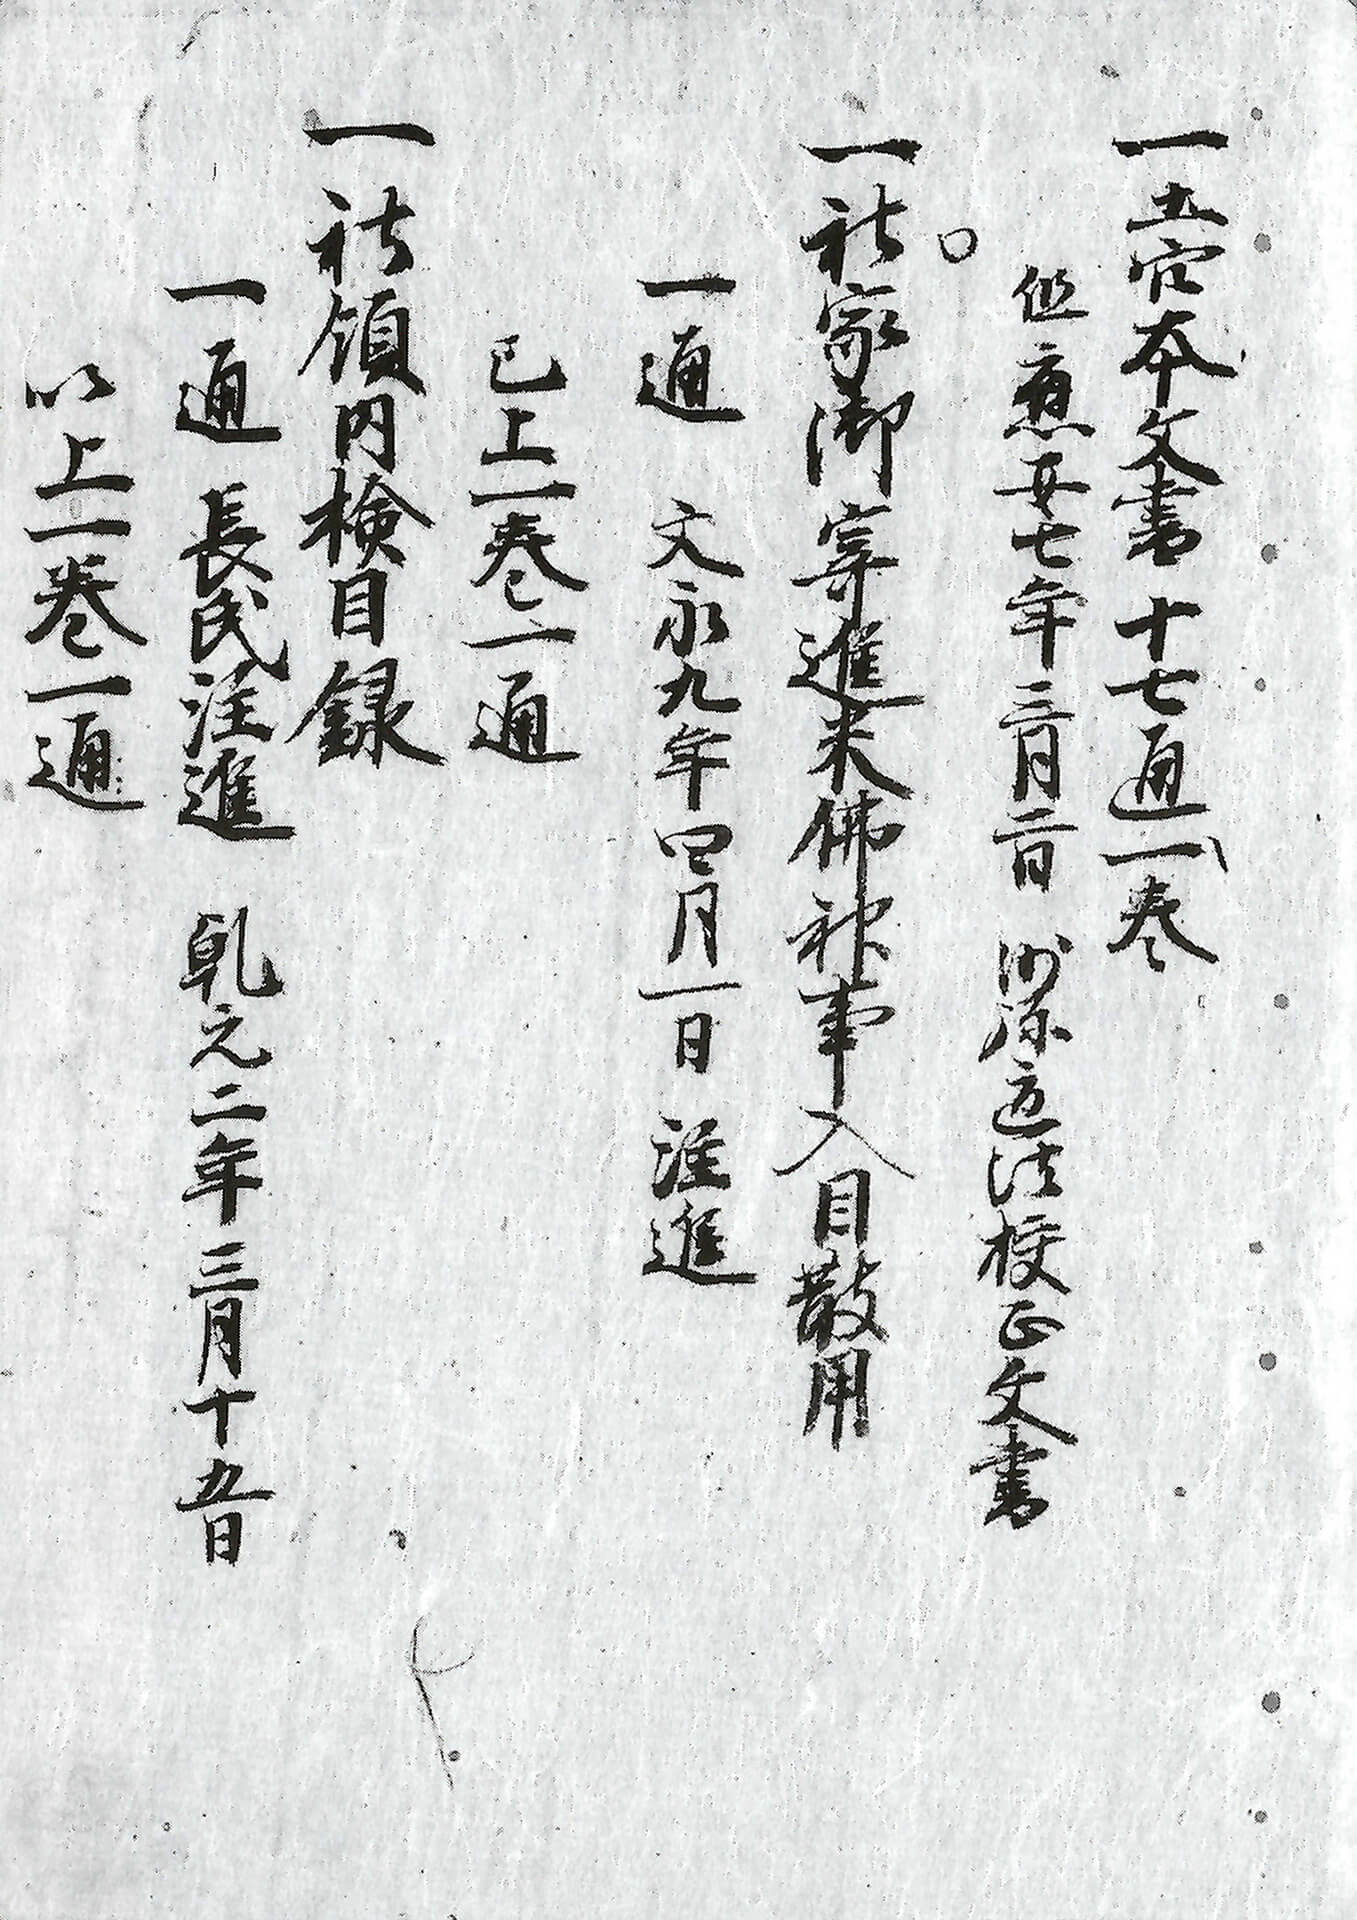 一五宮本文書十七通一巻
但應安七年三月二日沙弥道法校正文書
一社家御寄進米佛神事入目散用
一通 文永九年四月一日 注進
已上一巻一通
一社領内検目録
一通 長氏注進 乾元二年三月十五日
以上一巻一通